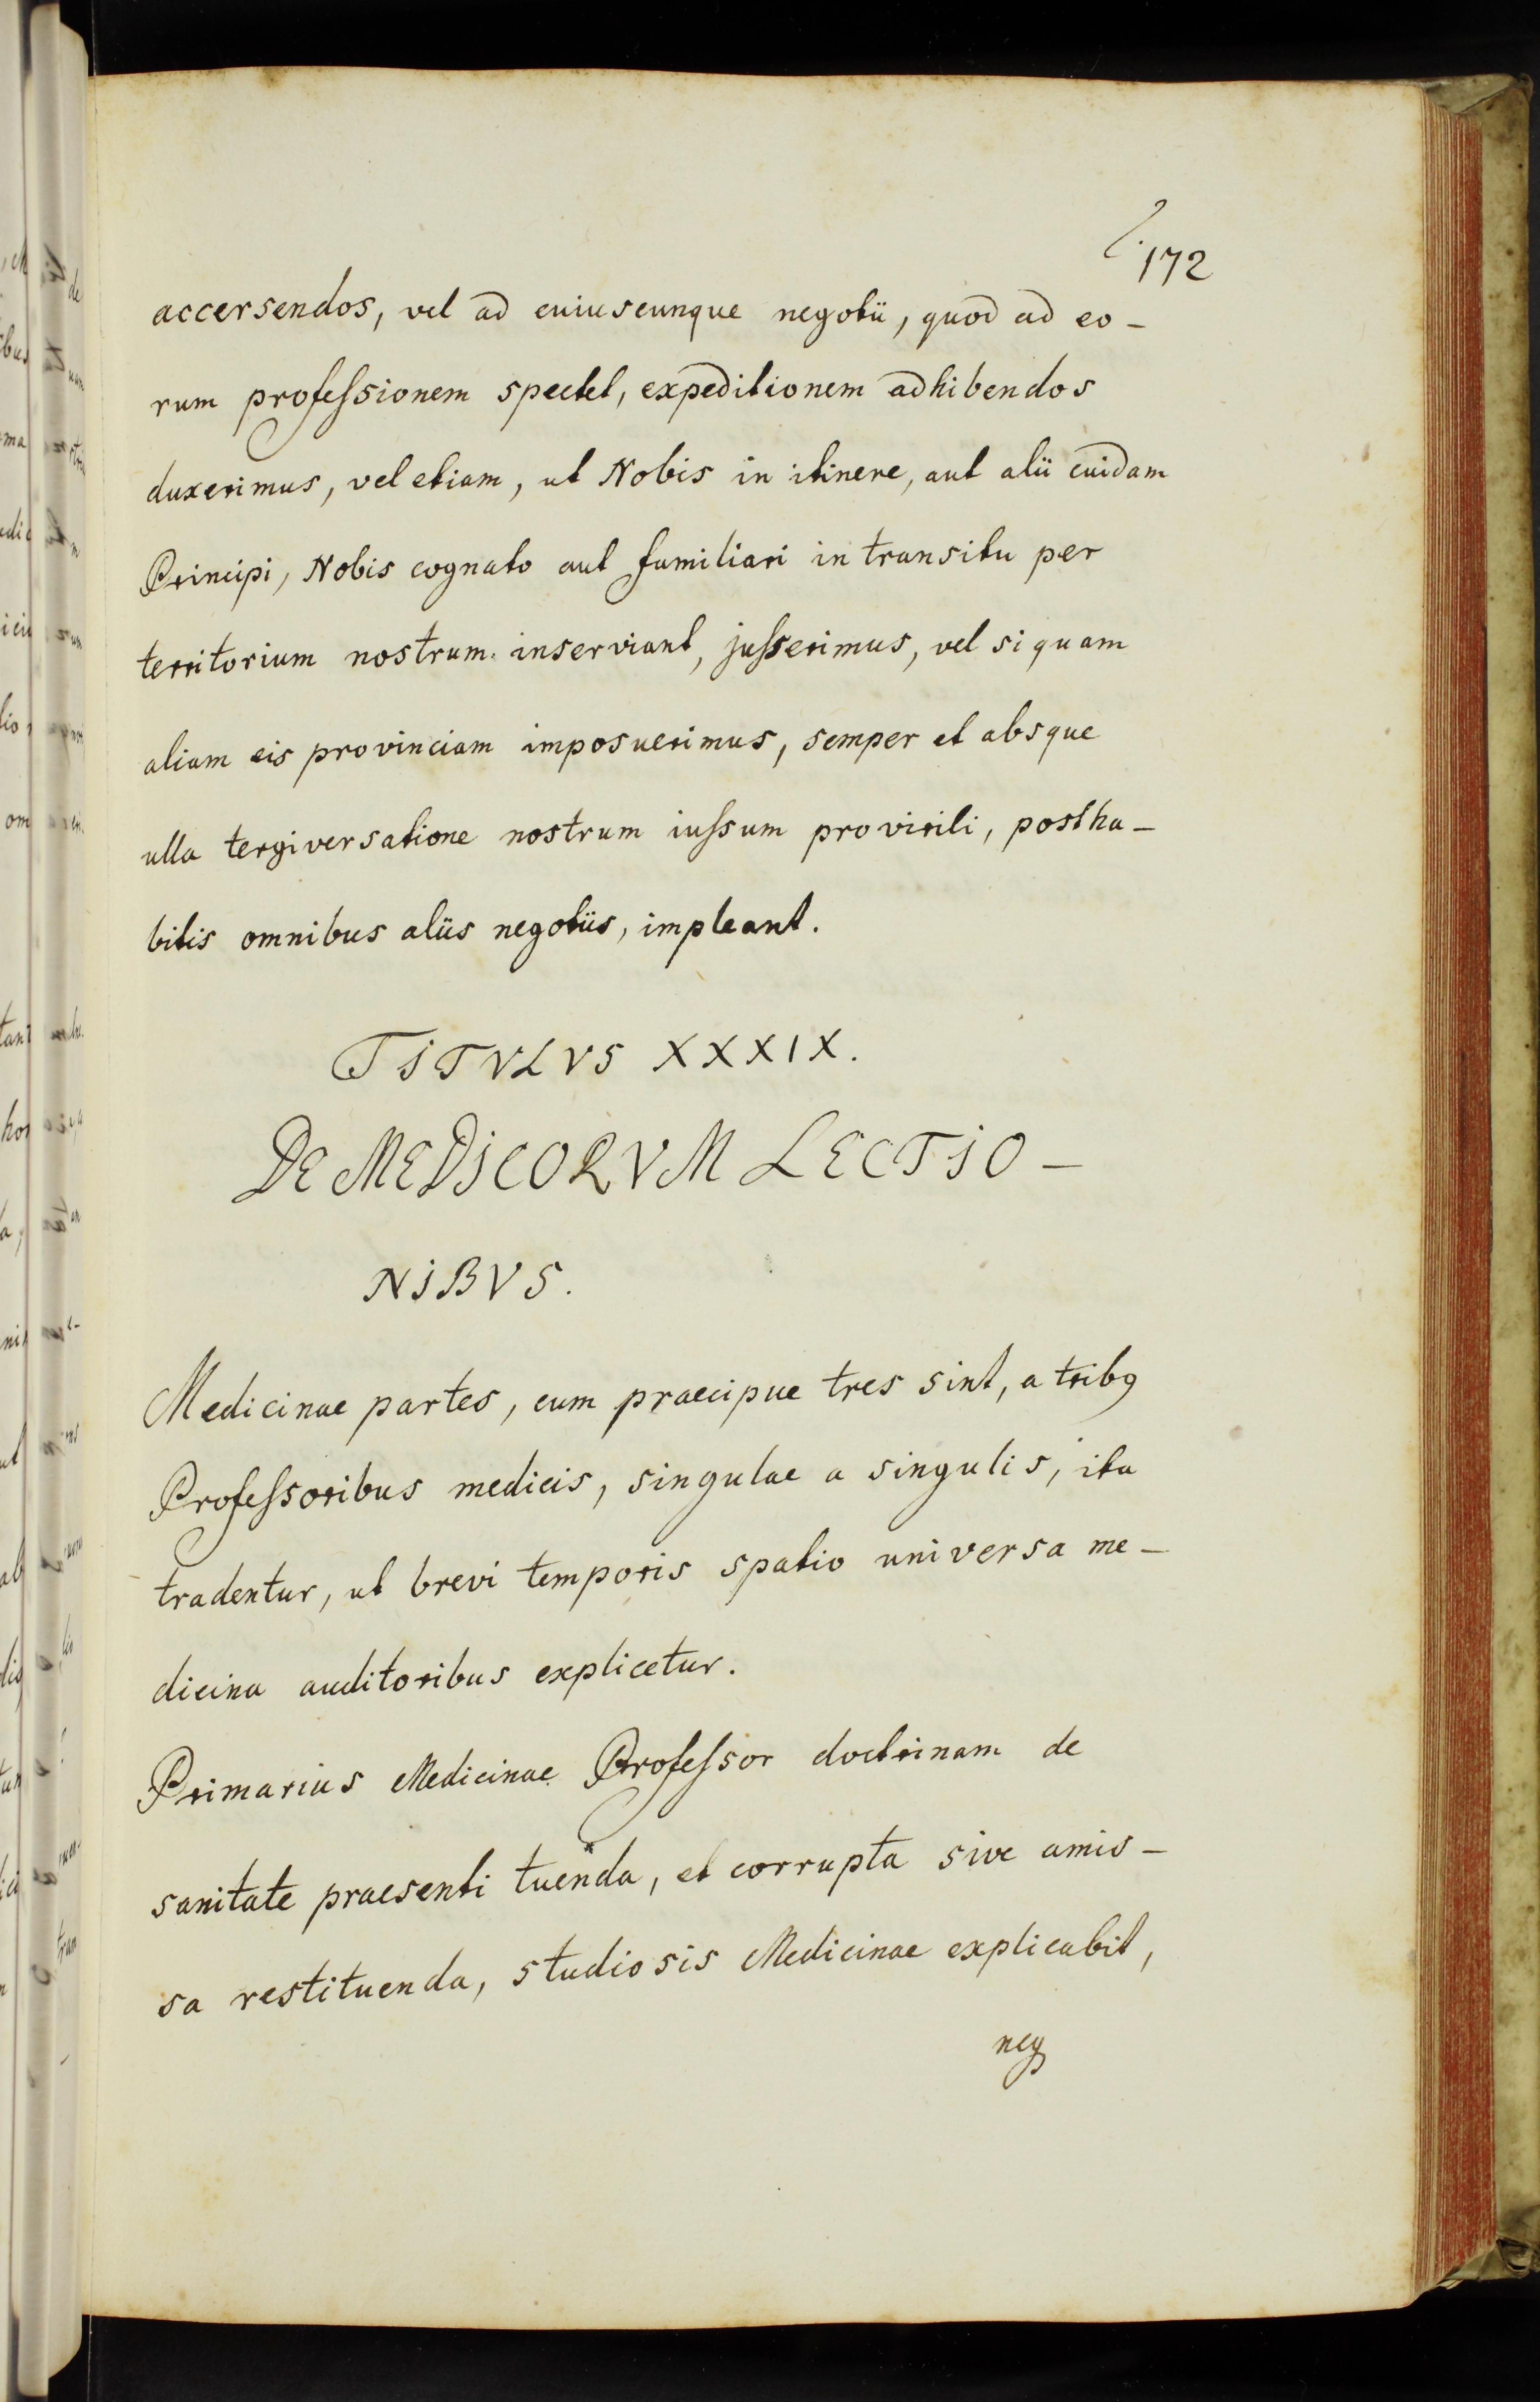 172
accersendos, vel ad cuiuscunque negotii, quod ad eo-
rum professionem spectet, expeditionem adhibendos
duxerimus, vel etiam, ut Nobis in itinere, aut alii cuidam
Principi, Nobis cognato aut familiari in transitu per
territorium nostrum inserviant, jusserimus, vel si quam
aliam eis provinciam imposuerimus, semper et absque
ulla tergiversatione nostrum iussum pro virili, postha-
bitis omnibus aliis negotiis, impleant.
TITVLVS XXXIX.
DE MEDICORVM LECTIO-
NIBVS.
Medicinae partes, cum praecipue tres sint, a trib9
Professoribus medicis, singulae a singulis, ita
tradentur, ut brevi temporis spatio universa me-
dicina auditoribus explicetur.
Primarius Medicinae Professor doctrinam de
sanitate praesenti tuenda, et corrupta sive amis-
sa restituenda, studiosis Medicinae explicabit,
neq